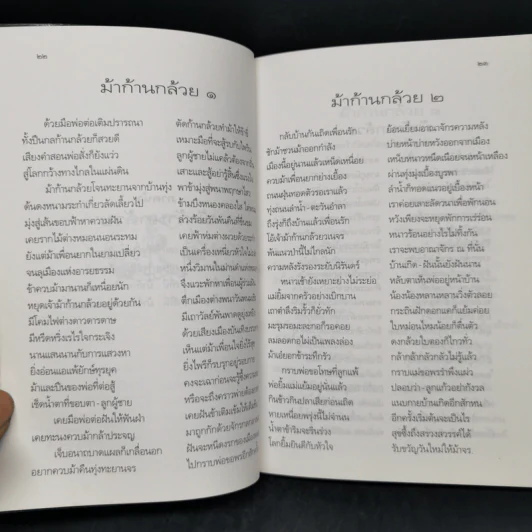 ๒๒
ม้าก้านกล้วย ๑
ด้วยมือพ่อต่อเติมปรารถนา
ตัดก้านกล้วยทำม้าให้
ทั้งปืนกลก้านกล้วยก็สวยดี
เหมาะมือที่จะสู้
เสียงคำสอนพ่อสั่งก็ยังแว่ว
ลูกผู้ชายไม่แคล้วต้อง
สู่โลกกว้างทางไกลในแผ่นดิน
เสาะแสะสู้อย่ารู้สิ้น
ม้าก้านกล้วยโจนทะยานจากบ้านทุ่ง
พาข้ามุ่งสู่พนาพฤกษา
ดั้นดงหนามระกำเกี้ยวลัดเลี้ยวไป
ข้ามบึงหนองคลอง
มุ่งสู่เส้นขอบฟ้าหาความฝัน
ล่วงร้อยวันพันคืน
เคยรากไม้ต่างหมอนนอนระทม
เคยฟ้าห่มต่าง
ยังแต่ม้าเพื่อนยากในยามเปลี่ยว
เป็นเครื่องเหนี่ยวหัวใจ
จนลุเมืองแห่งอารยธรรม
หนึ่งวัน
ข้าควบม้ามานานก็เหนื่อยนัก
จึงแวะพักหาเพื่อน
หยุดเจ้าม้าก้านกล้วยอยู่ด้วยกัน
ตึกเมือง
มีโดมไฟต่างดาวดารดาษ
มีเถาวัลย์
มีหรีดหริ่งเรไรไจกระเจิง
ด้วยเสียงเมือง
นานแสนนานกับการแสวงหา
เห็นแต่ม้าเพื่อน
ยิ่งอ่อนแอแพ้ยักษ์ทุรยุค
ยิ่งไพรีก็บุกรุก
ม้าและปืนของพ่อที่ต่อสู้
คงจะเฉา
เช็ดน้ำตาที่ขอบตา - ลูกผู้ชาย
หรือจะถึงคราว
เคยมือพ่อต่อฝันให้ฟันฝ่า
เคยฝันข้า
เคยทะนงควบม้ากล้าประจญ
มาถูก
เจ็บอนาถบาดแผลก็เกลื่อนอก
ฝันจะหนึ่ง
อยากควบม้าคืนทุ่งทะยานจร
ไปกราบพ่อ
๒๓
ม้าก้านกล้วย ๒
กลับบ้านกันเถิดเพื่อนรัก
ย้อนเยี่ยมอาณาจักรความหลัง
ชักม้าชวนม้าออกกำลัง
บ่ายหน้าบ่ายหวังออกจากเมือง
เมื่อนี้อยู่นานแล้วเหน็ดเหนื่อย
เหน็บหนาวเหน็ดเหนื่อยจนหน้าเหลือง
ควบม้าเพื่อนยากย่างเยื้อง
ผ่านทุ่งมุ่งเบื้องบูรพา
ถนนฝุ่นทอดตัวรอเราแล้ว
ลำน้ำก็ทอดแนวอยู่เบื้องหน้า
ทุ่งถนนลำน้ำ - ตะวันอำลา
เราค่อยเลาะลัดวนาเพื่อพักนอน
ถึงรุ่งก็ถึงบ้านแล้วเพื่อนรัก
หวังเพียงจะหยุดพักการเร่ร่อน
ไอ้เจ้าม้าก้านกล้วยวเนจร
หนาวร้อนอย่างไรไม่ทิ้งกัน
พ้นแนวป่านี้ไปใกล้นัก
เราจะพบอาณาจักร ณ ที่นั่น
ความหลังรังรองระยับนิรันดร์
บ้านเกิด - ฝันนั้นยังฝันนาน
หนาวเช้ายังเหยาะย่างไม่ระย่อ
หลับตาเห็นพ่ออยู่หน้าบ้าน
แม่ยิ้มจากครัวอย่างเบิกบาน
น้องน้องหลานหลานวิ่งตัวลอย
เถาตำลึงริมรั้วก็ยักทัก
กระถินฝักดอกแดก็แย้มค่อย
มะรุมรอมะลอกอก็รอคอย
ใบหม่อนไหมน้อยก็ตื่นตัว
ลมลอดกอไผ่เป็นเพลงล่อง
ดงกล้วยใบตองก็ไกวทั่ว
ม้าเอ๋ยอกข้าระทึกรัว
กล้ากล้ากลัวกลัวไม่รู้แล้ว
กราบพ่อขอโทษที่ลูกแพ้
กราบแม่ขอพรรำพึงแผ่ว
พ่อยิ้มแม่แย้มอยู่ฉันแล้ว
ปลอบว่า - ลูกแก้วอย่ากังวล
กินข้าวกินปลาเสียก่อนเถิด
แนบกายบ้านเกิดอีกสักหน
หายเหนื่อยพรุ่งนี้ไม่จำนน
อีกครั้งเริ่มต้นจะเป็นไร
น้ำตาข้าริมจะชื่นร่วง
สุขซึ้งถึงสรวงสวรรค์ได้
โลกยิ้มยินดีกับหัวใจ
รับขวัญวันใหม่ให้ม้าจร